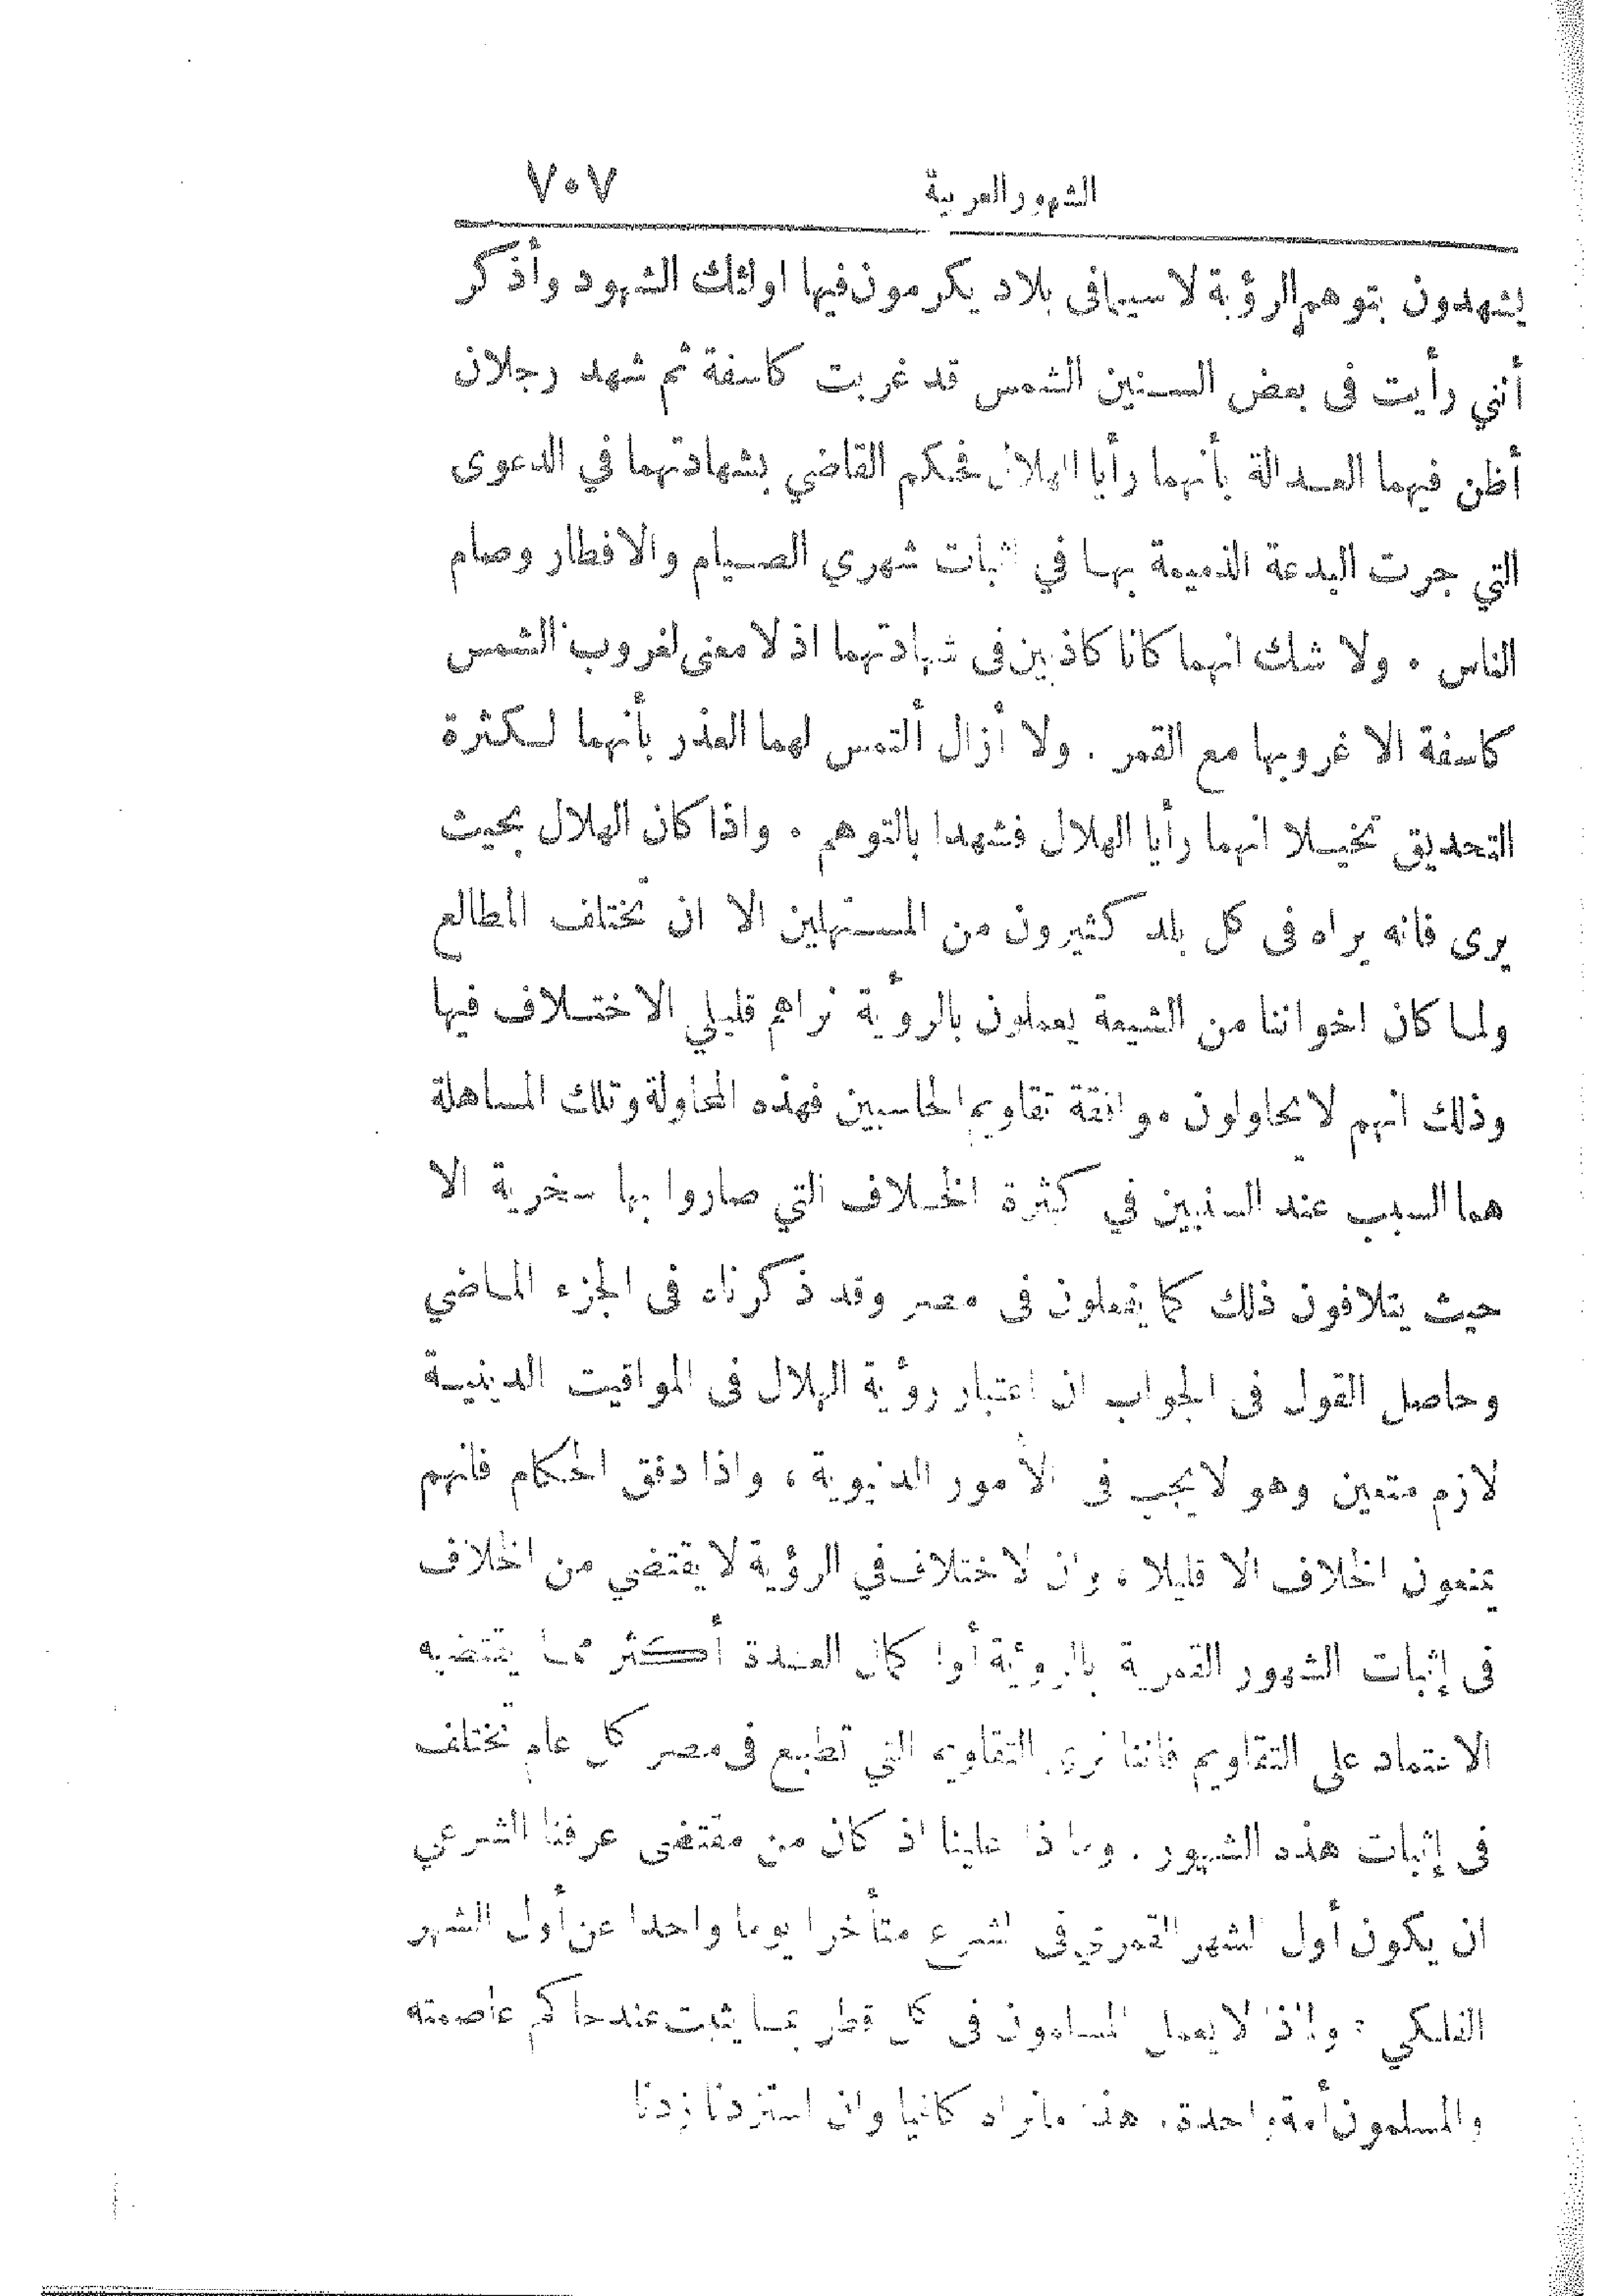 الشهور العربية ٧٠٧
يشهدون بتوهم الرؤية لاسيما فى بلاد يكرمون فيها اولئك الشهود وأذكر
أنني رأيت فى بعض السنين الشمس قد غربت كاسفة ثم شهد رجلان
أظن فيهما العدالة بأنهما رأيا الهلال فحكم القاضي بشهادتهما في الدعوى
التي جرت البدعة الذميمة بها في اثبات شهري الصيام والافطار وصام
الناس . ولا شك انهما كانا كاذبين فى شهادتهما اذ لا معنى لغروب الشمس
كاسفة الا غروبها مع القمر . ولا أزال ألتمس لهما العذر بأنهما لكثرة
التحديق تخيلا انهما رأيا الهلال فشهدا بالتوهم . واذا كان الهلال بحيث
يرى فانه يراه فى كل بلد كثيرون من المستهلين الا ان تختلف المطالع
ولما كان اخواننا من الشيعة يعملون بالرؤية نراهم قليلي الاختلاف فيها
وذلك انهم لا يحاولون موافقة تقاويم الحاسبين فهذه المحاولة وتلك المساهلة
هما السبب عند السنيين في كثرة الخلاف التي صاروا بها سخرية الا
حيث يتلافون ذلك كما يفعلون فى مصر وقد ذكرناه فى الجزء الماضي
وحاصل القول فى الجواب ان اعتبار رؤية الهلال فى المواقيت الدينية
لازم متعين وهو لا يجب فى الأمور الدنيوية ، واذا دقق الحكام فانهم
يمنعون الخلاف الا قليلا ، وان الاختلاف في الرؤية لا يقتضي من الخلاف
فى إثبات الشهور القمرية بالرؤية أو اكمال العدة أكثر مما يقتضيه
الاعتماد على التقاويم فاننا نرى التقاويم التي تطبع فى مصر كل عام تختلف
فى إثبات هذه الشهور . وماذا علينا اذ كان من مقتضى عرفنا الشرعي
ان يكون أول الشهر القمري فى الشرع متأخرا يوما واحدا عن أول الشهر
الفلكي ؛ ولماذا لا يعمل المسلمون فى كل قطر بما يثبت عند حاكم عاصمته
والمسلمون أمة واحدة . هذا ما نراه كافيا وان استزدتنا زدنا